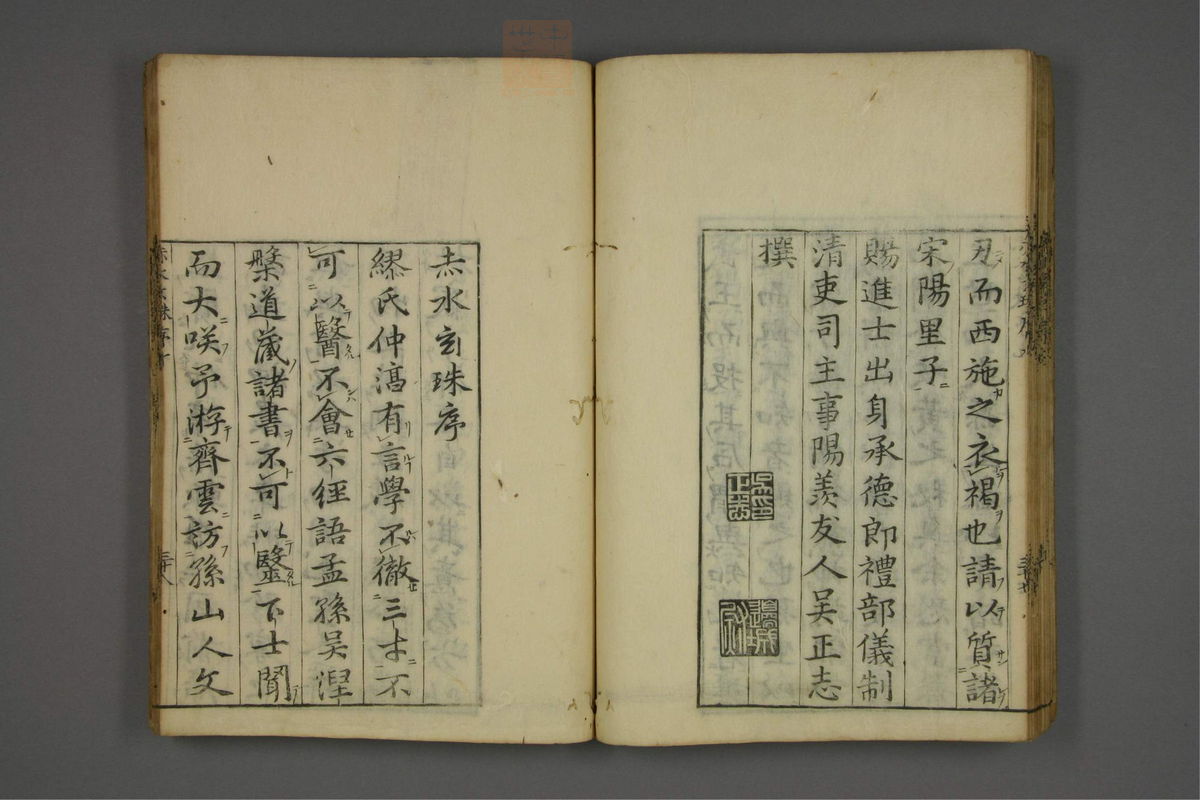 刃而西施之衣褐也請以質諸
宋陽里子
賜進士出身承德郎禮部儀制
清吏司主事陽羨友人吴正志
撰
赤水玄珠序
繆氏仲淳有言學不徹三才不
可以醫不會六經語孟孫吴湼
槃道藏諸書不可以醫下士聞
而大咲予游齊雲訪孫山人文